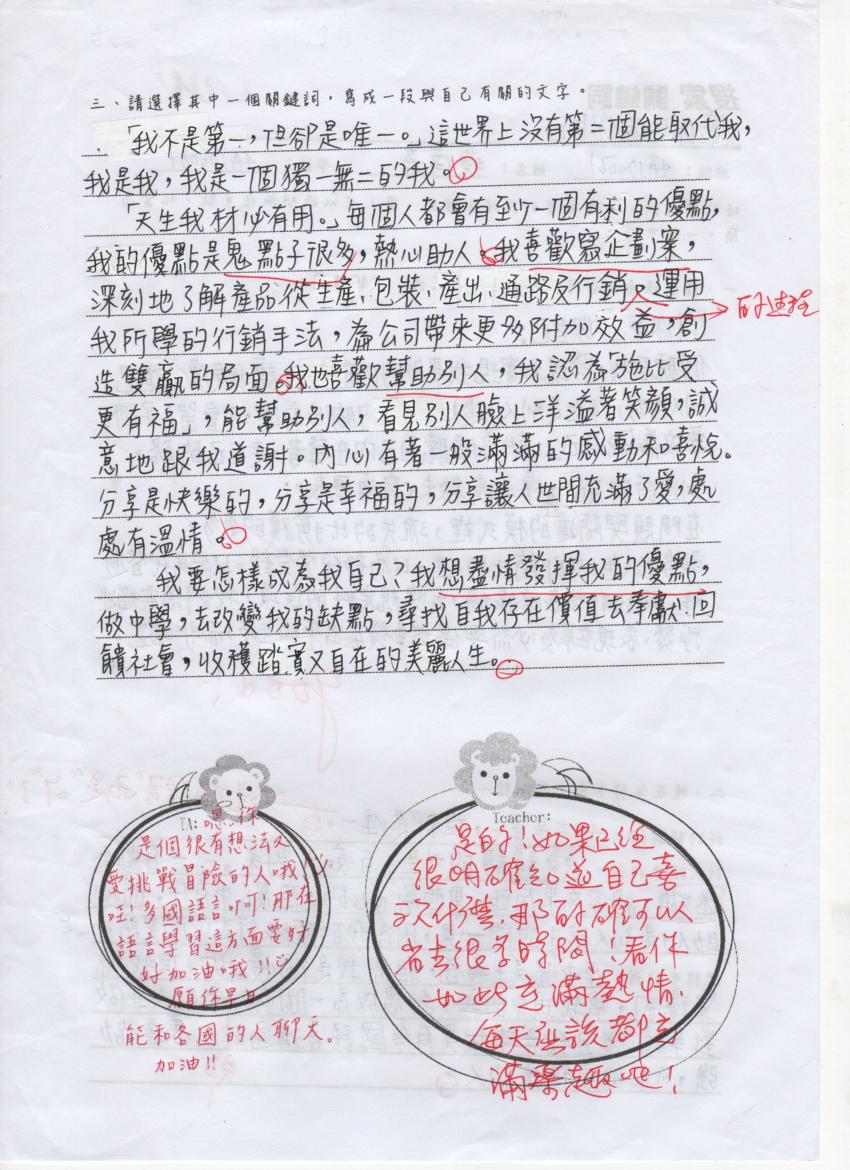 三、請選擇其中一個關鍵詞，寫成一段與自己有關的文字。
「我不是第一，但卻是唯一。」這世界上沒有第二個能取代我，
我是我，我是一個獨一無二的我。
「天生我材必有用。」每個人都會有至少一個有利的優點，
我的優點是鬼點子很多，熱心助人。我喜歡寫企劃案，
深刻地了解產品從生產、包裝、產出、通路及行銷。運用
的過程
我所學的行銷手法，為公司帶來更多附加效益，創
造雙贏的局面。我也喜歡幫助別人，我認為「施比受
更有福」，能幫助別人，看見別人臉上洋溢著笑顏，誠
意地跟我道謝。內心有著一般滿滿的感動和喜悅。
分享是快樂的，分享是幸福的，分享讓人世間充滿了愛，處
處有溫情。
我要怎樣成為我自己？我想盡情發揮我的優點，
做中學，去改變我的缺點，尋找自我存在價值去奉獻、回
饋社會，收穫踏實又自在的美麗人生。
TA: 嗯，你
是個很有想法又
愛挑戰冒險的人哦！
哇！多國語言啊！那在
語言學習這方面要好
好加油哦!!
願你早日
能和各國的人聊天。
加油!!
Teacher:
是的！如果已經
很明確知道自己喜
歡什麼，那的確可以
省去很多時間！看你
如此充滿熱情，
每天應該都充
滿樂趣吧！